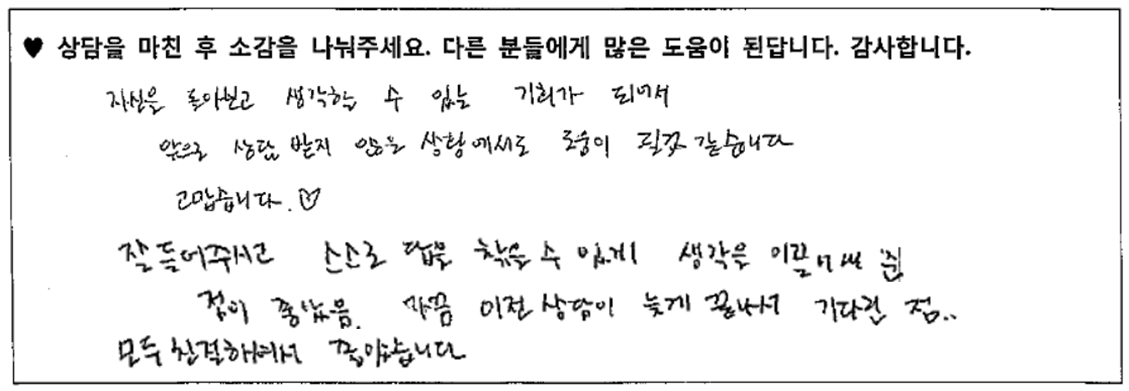 ♥ 상담을 마친 후 소감을 나눠주세요. 다른 분들에게 많은 도움이 된답니다. 감사합니다.
자신을 돌아보고 생각할 수 있는 기회가 되어서
앞으로 상담 받지 않을 상황에서도 도움이 될것 같습니다
고맙습니다. ♡
잘 들어주시고 스스로 답을 찾을 수 있게 생각을 이끌어내 준
점이 좋았음. 가끔 이전 상담이 늦게 끝나서 기다린 점..
모두 친절하셔서 좋았습니다